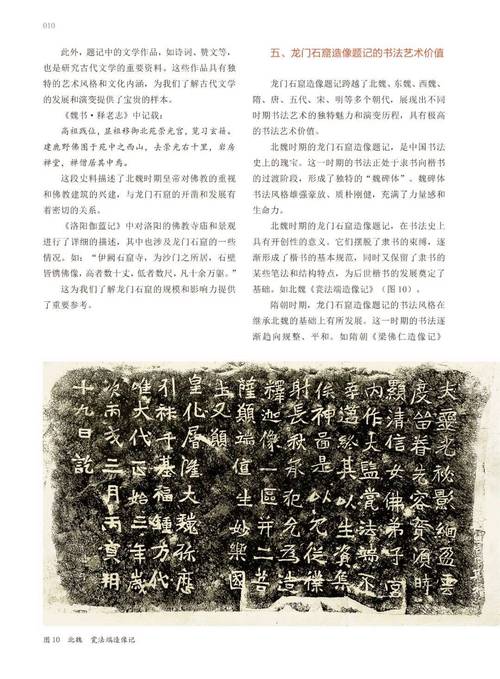 010
此外，题记中的文学作品，如诗词、赞文等，
也是研究古代文学的重要资料。这些作品具有独
特的艺术风格和文化内涵，为我们了解古代文学
的发展和演变提供了宝贵的样本。
《魏书·释老志》中记载：
高祖践位，显祖移御北苑崇光宫，览习玄籍。
建鹿野佛图于苑中之西山，去崇光右十里，岩房
禅堂，禅僧居其中焉。
这段史料描述了北魏时期皇帝对佛教的重视
和佛教建筑的兴建，与龙门石窟的开凿和发展有
着密切的关系。
《洛阳伽蓝记》中对洛阳的佛教寺庙和景观
进行了详细的描述，其中也涉及龙门石窟的一些
情况。如：“伊阙石窟寺，为沙门之所居，石壁
皆镌佛像，高者数十丈，低者数尺，凡十余万躯。”
这为我们了解龙门石窟的规模和影响力提供
了重要参考。
五、龙门石窟造像题记的书法艺术价值
龙门石窟造像题记跨越了北魏、东魏、西魏、
隋、唐、五代、宋、明等多个朝代，展现出不同
时期书法艺术的独特魅力和演变历程，具有极高
的书法艺术价值。
北魏时期的龙门石窟造像题记，是中国书法
史上的瑰宝。这一时期的书法正处于隶书向楷书
的过渡阶段，形成了独特的“魏碑体”。魏碑体
书法风格雄强豪放、质朴刚健，充满了力量感和
生命力。
北魏时期的龙门石窟造像题记，在书法史上
具有开创性的意义。它们摆脱了隶书的束缚，逐
渐形成了楷书的基本规范，同时又保留了隶书的
某些笔法和结构特点，为后世楷书的发展奠定了
基础。如北魏《瓽法端造像记》（图 10）。
隋朝时期，龙门石窟造像题记的书法风格在
继承北魏的基础上有所发展。这一时期的书法逐
渐趋向规整、平和。如隋朝《梁佛仁造像记》
夫靈光祕影緬盈雲
度眷先容賓須時
顯清信女佛弟子宮
內作大監瓽法端不
幸遘終其以生資集
神啚是以冗從僕
射長秋承祀允為造
釋迦像一區并二菩
薩願端值生妙樂國
土又願
皇化層隆大魏彌歷
引千基福鍾万代
唯大代正始三年歲
次丙戌三月丙寅朔
十九日訖
图 10 北魏 瓽法端造像记